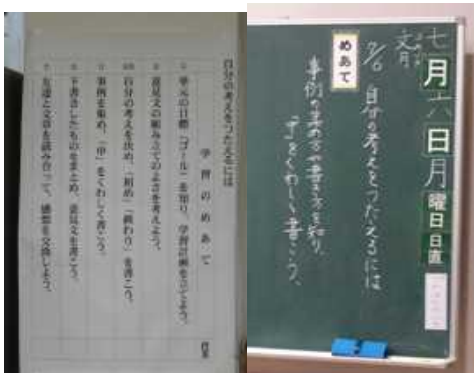 自分の考えをつたえるには
学習のめあて
単元の目標「ゴール」を知り、学習計画を立てよう。
意見文の組み立てのよさを考えよう。
自分の考えを決め、「初め」「終わり」を書こう。
事例を集め、「中」をくわしく書こう。
下書きしたものをまとめ、意見文を書こう。
友達と文章を読み合って、感想を交換しよう。
七月六日月曜日
日直
文月
7/6 自分の考えをつたえるには
めあて
事例の集め方や書き方を知り、
「中」をくわしく書こう。